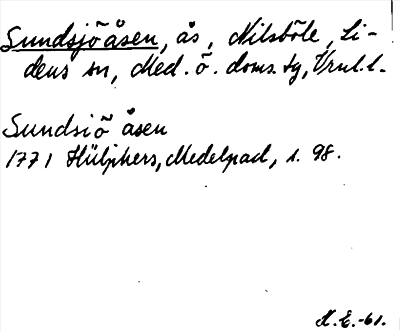 Sundsjöåsen, ås, Nilsböle, Li-
dens sn, Med. ö. doms. tg, Vrnl. l.
Sundsiö åsen
1771 Hülphers, Medelpad, s. 98.
K.E.-61.